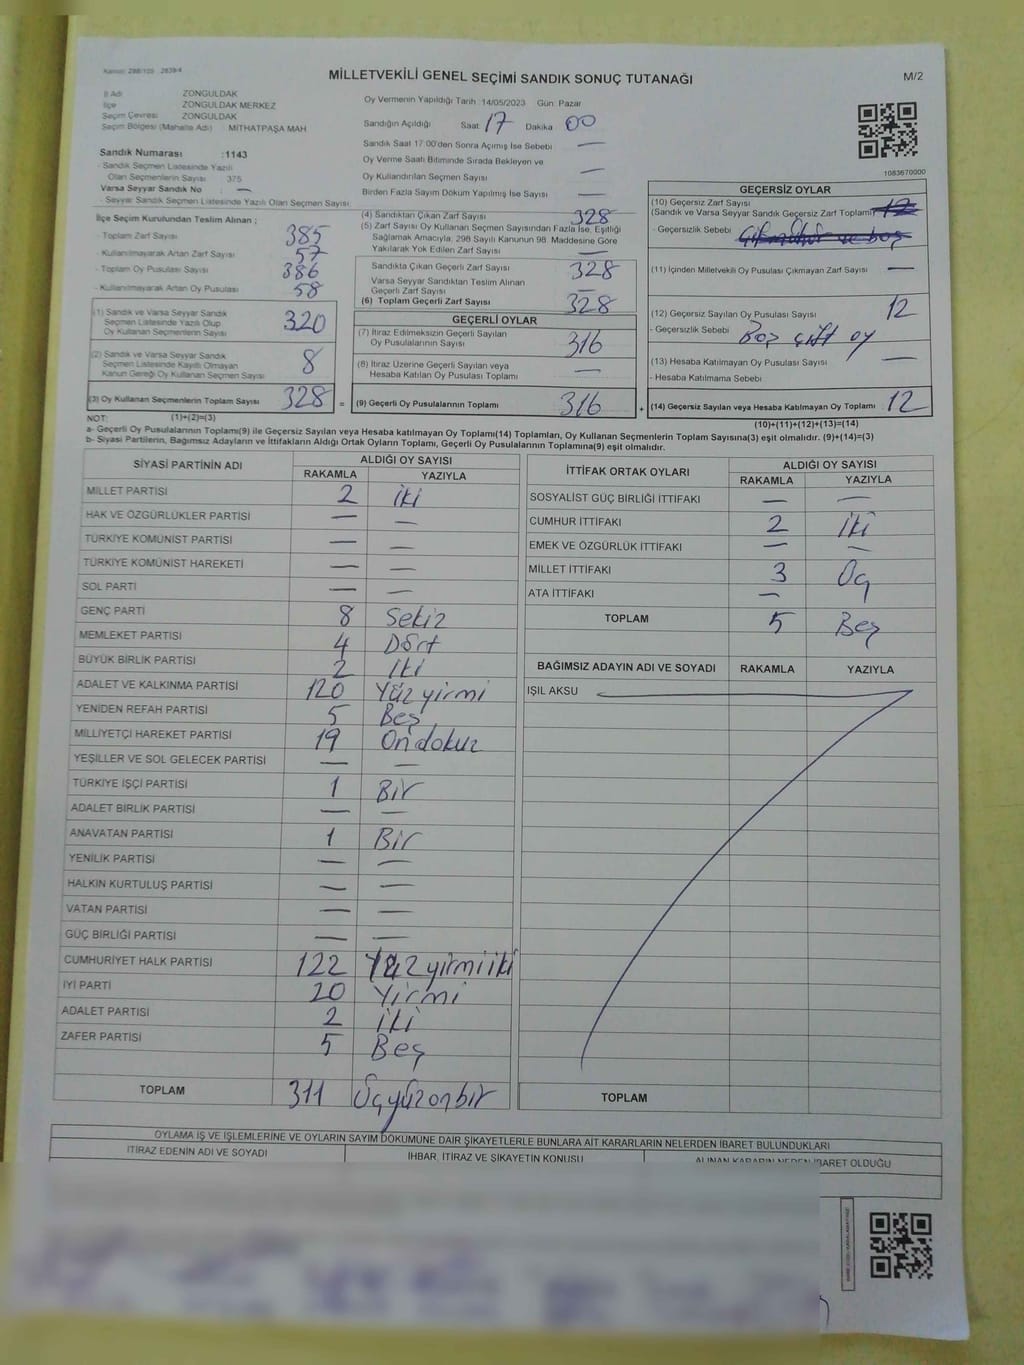 Kanun: 298/105 2839/4
MİLLETVEKİLİ GENEL SEÇİMİ SANDIK SONUÇ TUTANAĞI
M/2
İl Adı ZONGULDAK
İlçe ZONGULDAK MERKEZ
Seçim Çevresi ZONGULDAK
Seçim Bölgesi (Mahalle Adı) MİTHATPAŞA MAH
Oy Vermenin Yapıldığı Tarih :14/05/2023 Gün: Pazar
Sandığın Açıldığı Saat 17 Dakika 00
Sandık Saat 17:00'den Sonra Açılmış İse Sebebi —
Oy Verme Saati Bitiminde Sırada Bekleyen ve
Oy Kullandırılan Seçmen Sayısı —
Birden Fazla Sayım Döküm Yapılmış İse Sayısı —
1083670000
Sandık Numarası :1143
- Sandık Seçmen Listesinde Yazılı
Olan Seçmenlerin Sayısı 375
Varsa Seyyar Sandık No —
- Seyyar Sandık Seçmen Listesinde Yazılı Olan Seçmen Sayısı
İlçe Seçim Kurulundan Teslim Alınan ;
- Toplam Zarf Sayısı 385
- Kullanılmayarak Artan Zarf Sayısı 57
- Toplam Oy Pusulası Sayısı 386
- Kullanılmayarak Artan Oy Pusulası 58
(1) Sandık ve Varsa Seyyar Sandık
Seçmen Listesinde Yazılı Olup
Oy Kullanan Seçmenlerin Sayısı 320
(2) Sandık ve Varsa Seyyar Sandık
Seçmen Listesinde Kayıtlı Olmayan
Kanun Gereği Oy Kullanan Seçmen Sayısı 8
(3) Oy Kullanan Seçmenlerin Toplam Sayısı 328 =
(4) Sandıktan Çıkan Zarf Sayısı 328
(5) Zarf Sayısı Oy Kullanan Seçmen Sayısından Fazla İse, Eşitliği
Sağlamak Amacıyla, 298 Sayılı Kanunun 98. Maddesine Göre
Yakılarak Yok Edilen Zarf Sayısı —
Sandıkta Çıkan Geçerli Zarf Sayısı 328
Varsa Seyyar Sandıktan Teslim Alınan
Geçerli Zarf Sayısı —
(6) Toplam Geçerli Zarf Sayısı 328
GEÇERLİ OYLAR
(7) İtiraz Edilmeksizin Geçerli Sayılan
Oy Pusulalarının Sayısı 316
(8) İtiraz Üzerine Geçerli Sayılan veya
Hesaba Katılan Oy Pusulası Toplamı —
(9) Geçerli Oy Pusulalarının Toplamı 316 +
GEÇERSİZ OYLAR
(10) Geçersiz Zarf Sayısı
(Sandık ve Varsa Seyyar Sandık Geçersiz Zarf Toplamı) 12
- Geçersizlik Sebebi
(11) İçinden Milletvekili Oy Pusulası Çıkmayan Zarf Sayısı —
(12) Geçersiz Sayılan Oy Pusulası Sayısı 12
- Geçersizlik Sebebi Boş çift oy
(13) Hesaba Katılmayan Oy Pusulası Sayısı —
- Hesaba Katılmama Sebebi
(14) Geçersiz Sayılan veya Hesaba Katılmayan Oy Toplamı 12
NOT: (1)+(2)=(3)
(10)+(11)+(12)+(13)=(14)
a- Geçerli Oy Pusulalarının Toplamı(9) ile Geçersiz Sayılan veya Hesaba katılmayan Oy Toplamı(14) Toplamları, Oy Kullanan Seçmenlerin Toplam Sayısına(3) eşit olmalıdır. (9)+(14)=(3)
b- Siyasi Partilerin, Bağımsız Adayların ve İttifakların Aldığı Ortak Oyların Toplamı, Geçerli Oy Pusulalarının Toplamına(9) eşit olmalıdır.
SİYASİ PARTİNİN ADI ALDIĞI OY SAYISI
RAKAMLA YAZIYLA
MİLLET PARTİSİ 2 iki
HAK VE ÖZGÜRLÜKLER PARTİSİ — —
TÜRKİYE KOMÜNİST PARTİSİ — —
TÜRKİYE KOMÜNİST HAREKETİ — —
SOL PARTİ — —
GENÇ PARTİ 8 Sekiz
MEMLEKET PARTİSİ 4 Dört
BÜYÜK BİRLİK PARTİSİ 2 İki
ADALET VE KALKINMA PARTİSİ 120 Yüz yirmi
YENİDEN REFAH PARTİSİ 5 Beş
MİLLİYETÇİ HAREKET PARTİSİ 19 On dokuz
YEŞİLLER VE SOL GELECEK PARTİSİ — —
TÜRKİYE İŞÇİ PARTİSİ 1 Bir
ADALET BİRLİK PARTİSİ — —
ANAVATAN PARTİSİ 1 Bir
YENİLİK PARTİSİ — —
HALKIN KURTULUŞ PARTİSİ — —
VATAN PARTİSİ — —
GÜÇ BİRLİĞİ PARTİSİ — —
CUMHURİYET HALK PARTİSİ 122 Yüz yirmi iki
İYİ PARTİ 20 Yirmi
ADALET PARTİSİ 2 İki
ZAFER PARTİSİ 5 Beş
TOPLAM 311 Üçyüzonbir
İTTİFAK ORTAK OYLARI ALDIĞI OY SAYISI
RAKAMLA YAZIYLA
SOSYALİST GÜÇ BİRLİĞİ İTTİFAKI — —
CUMHUR İTTİFAKI 2 İki
EMEK VE ÖZGÜRLÜK İTTİFAKI — —
MİLLET İTTİFAKI 3 Üç
ATA İTTİFAKI —
TOPLAM 5 Beş
BAĞIMSIZ ADAYIN ADI VE SOYADI RAKAMLA YAZIYLA
IŞIL AKSU
TOPLAM
OYLAMA İŞ VE İŞLEMLERİNE VE OYLARIN SAYIM DÖKÜMÜNE DAİR ŞİKAYETLERLE BUNLARA AİT KARARLARIN NELERDEN İBARET BULUNDUKLARI
İTİRAZ EDENİN ADI VE SOYADI İHBAR, İTİRAZ VE ŞİKAYETİN KONUSU ALINAN KARARIN NEDEN İBARET OLDUĞU